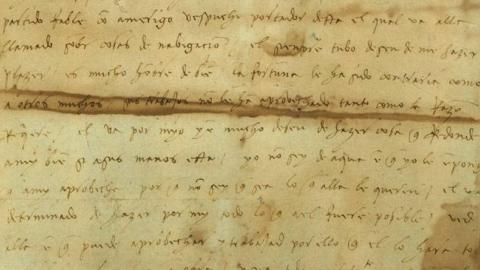 partido fable cõ amerigo vespuchi portador desta el qual va alla
llamado sobr cosas de nabigaciõn / el siempre tubo deseo de me hazer
plazer es mucho hõbre de bien la fortuna le ha sido contraria como
a otros muchos sus trabajos nõ le hã aprobechado tanto como la razõ
requere / el va por myo y ẽ mucho deseo de hazer cosa q̃ redonde
a my bien sy a sus manos esta / yo nõ sey de aqua ẽ q̃ yo le epong
q̃ a my aprobeche por q̃ nõ sey q̃ sea lo q̃ alla le queren / el va
determinado de hazer por my todo lo q̃ a el fuere posible / ved
alla ẽ q̃ puede aprobechar y trabajad por ello q̃ el lo hara to